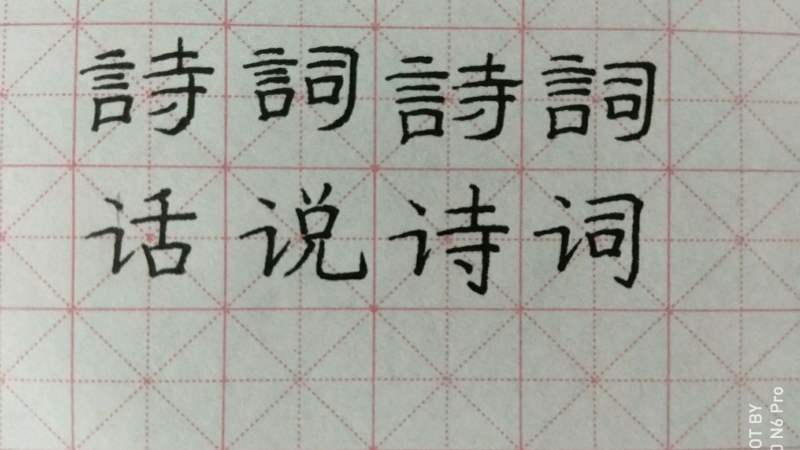 詩詞詩詞
话说诗词
OT BY
O N6 Pro